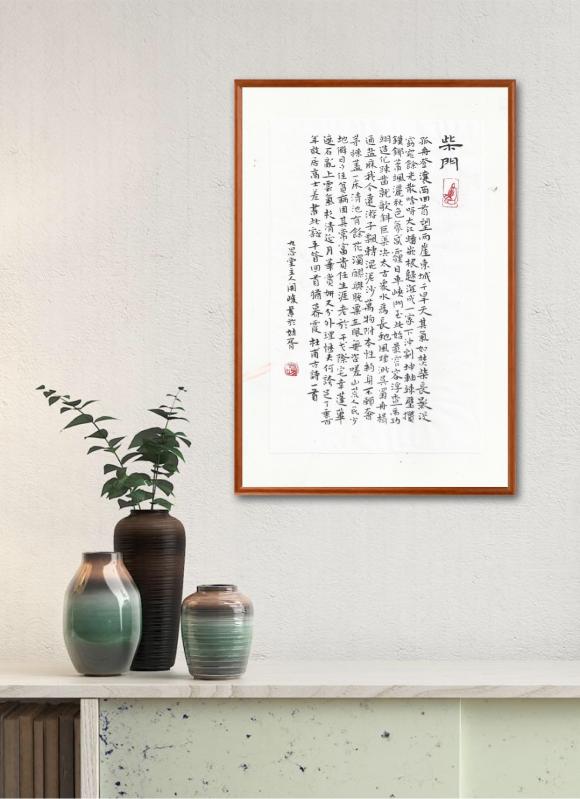 柴門
孤舟登瀼西回首望兩崖東城干旱天其氣如焚柴長影沒
窈窕餘光散唅呀大江蟠嵌根歸海成一家下沖割坤軸竦壁攢
鏌鋣蕭颯灑秋色氛昏霾日車峽門自此始最窄容浮查禹功
翊造化疏鑿就欹斜巨渠決太古衆水為長蛇風煙渺吳蜀舟楫
通盐麻我今遠遊子飄轉混泥沙萬物附本性約身不願奢
茅棟蓋一床清池有餘花濁醪與脫粟在眼無咨嗟山荒人民少
地僻日夕佳貧病固其常富貴任生涯老於干戈際宅幸蓬蓽
遮石亂上雲氣杉清延月華賞妍又分外理愜夫何誇足了垂百
年敢居高士差書此豁平昔回首猶暮霞 杜甫古詩一首
九思堂主人周峻書於